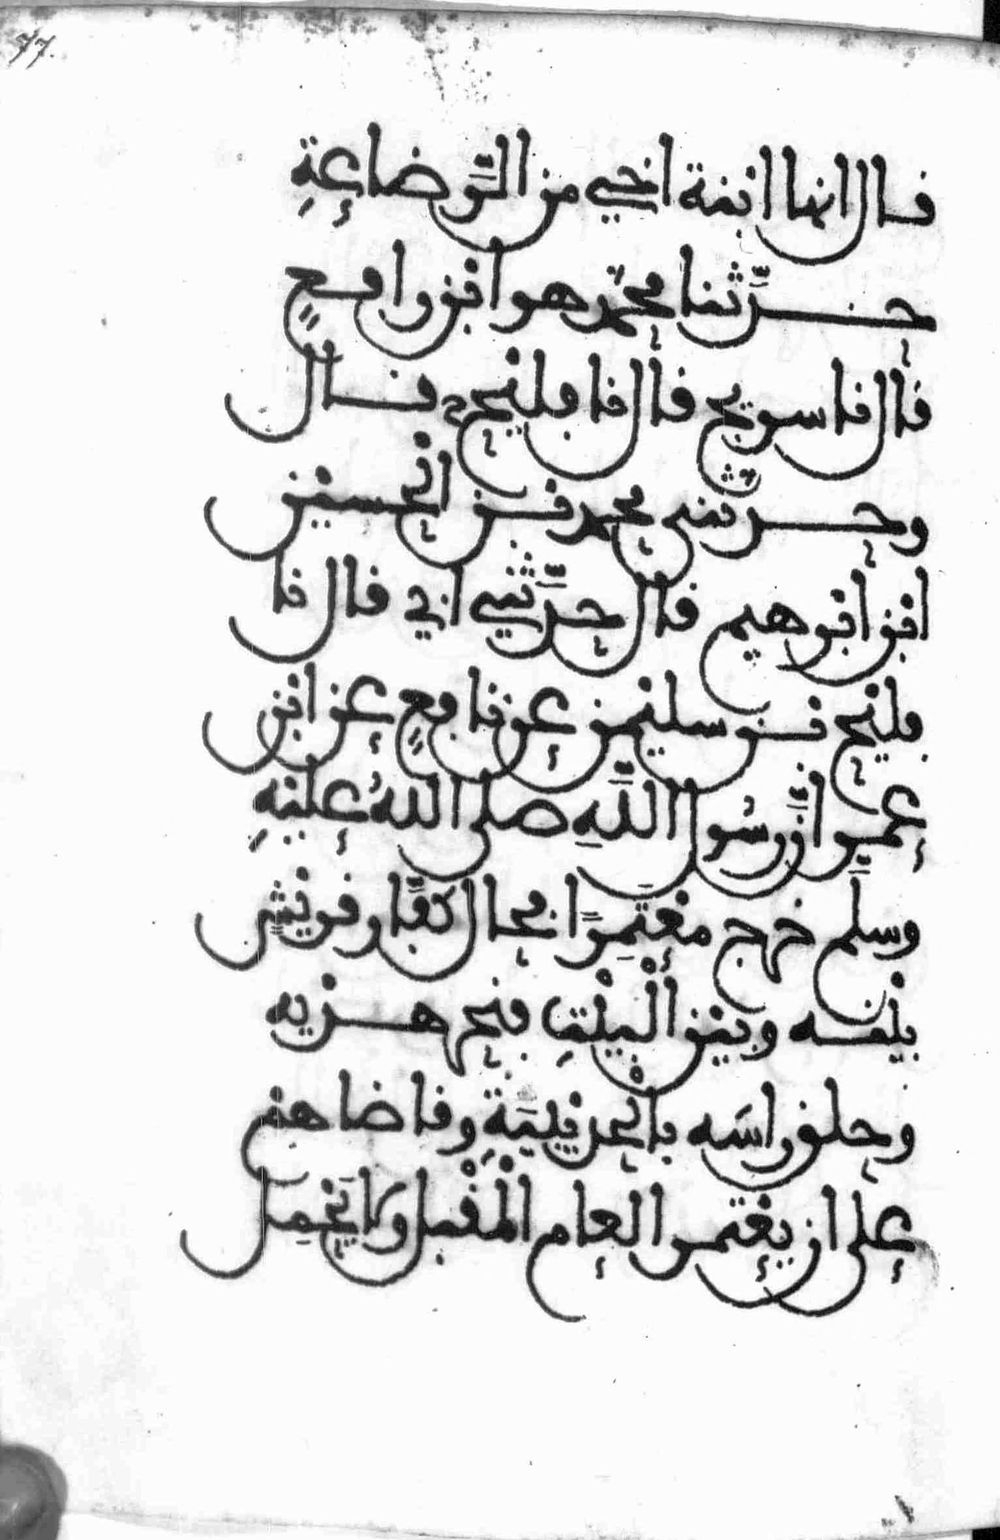 77.
قال انها ابنة اخي من الرَّضاعةِ
حدَّثنا محمّد هو ابن رافعٍ
قال نا سريج قال نا فليح ح قال
وحدّثني محمد بن الحسين
ابن ابرهيم قال حدَّثني ابي قال نا
فليح بن سليمن عن نافعٍ عن ابن
عمر انَّ رسُول اللَّهِ صلى اللهُ عليْهِ
وسلَّم خرج معْتمِرًا فحال كفَّار قريْشٍ
بيْنه وبين الْبيْتِ فنحر هديه
وحلق راسَه بالْحديْبيَةِ وقاضاهم
على ان يعْتمر العام المقْبل ولا يَحْمِل